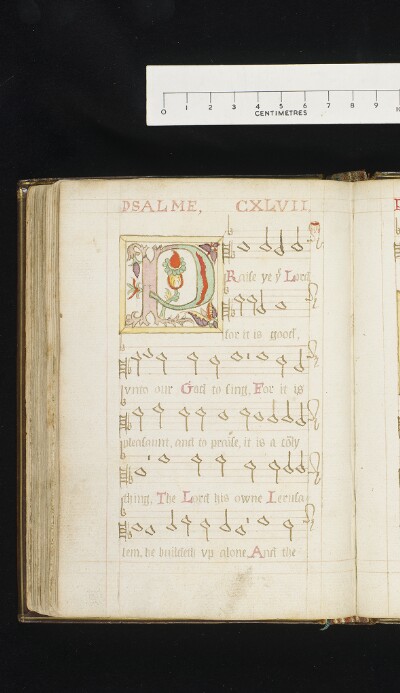 0 1 2 3 4 5 6 7 8 9
CENTIMETRES
PSALME, CXLVII.
PRaise ye yͤ Lord
for it is good,
vnto our God to sing, For it is
pleasaunt, and to praise, it is a coly
thing, The Lord his owne Ierusa-
lem, he buildeth vp alone, And the